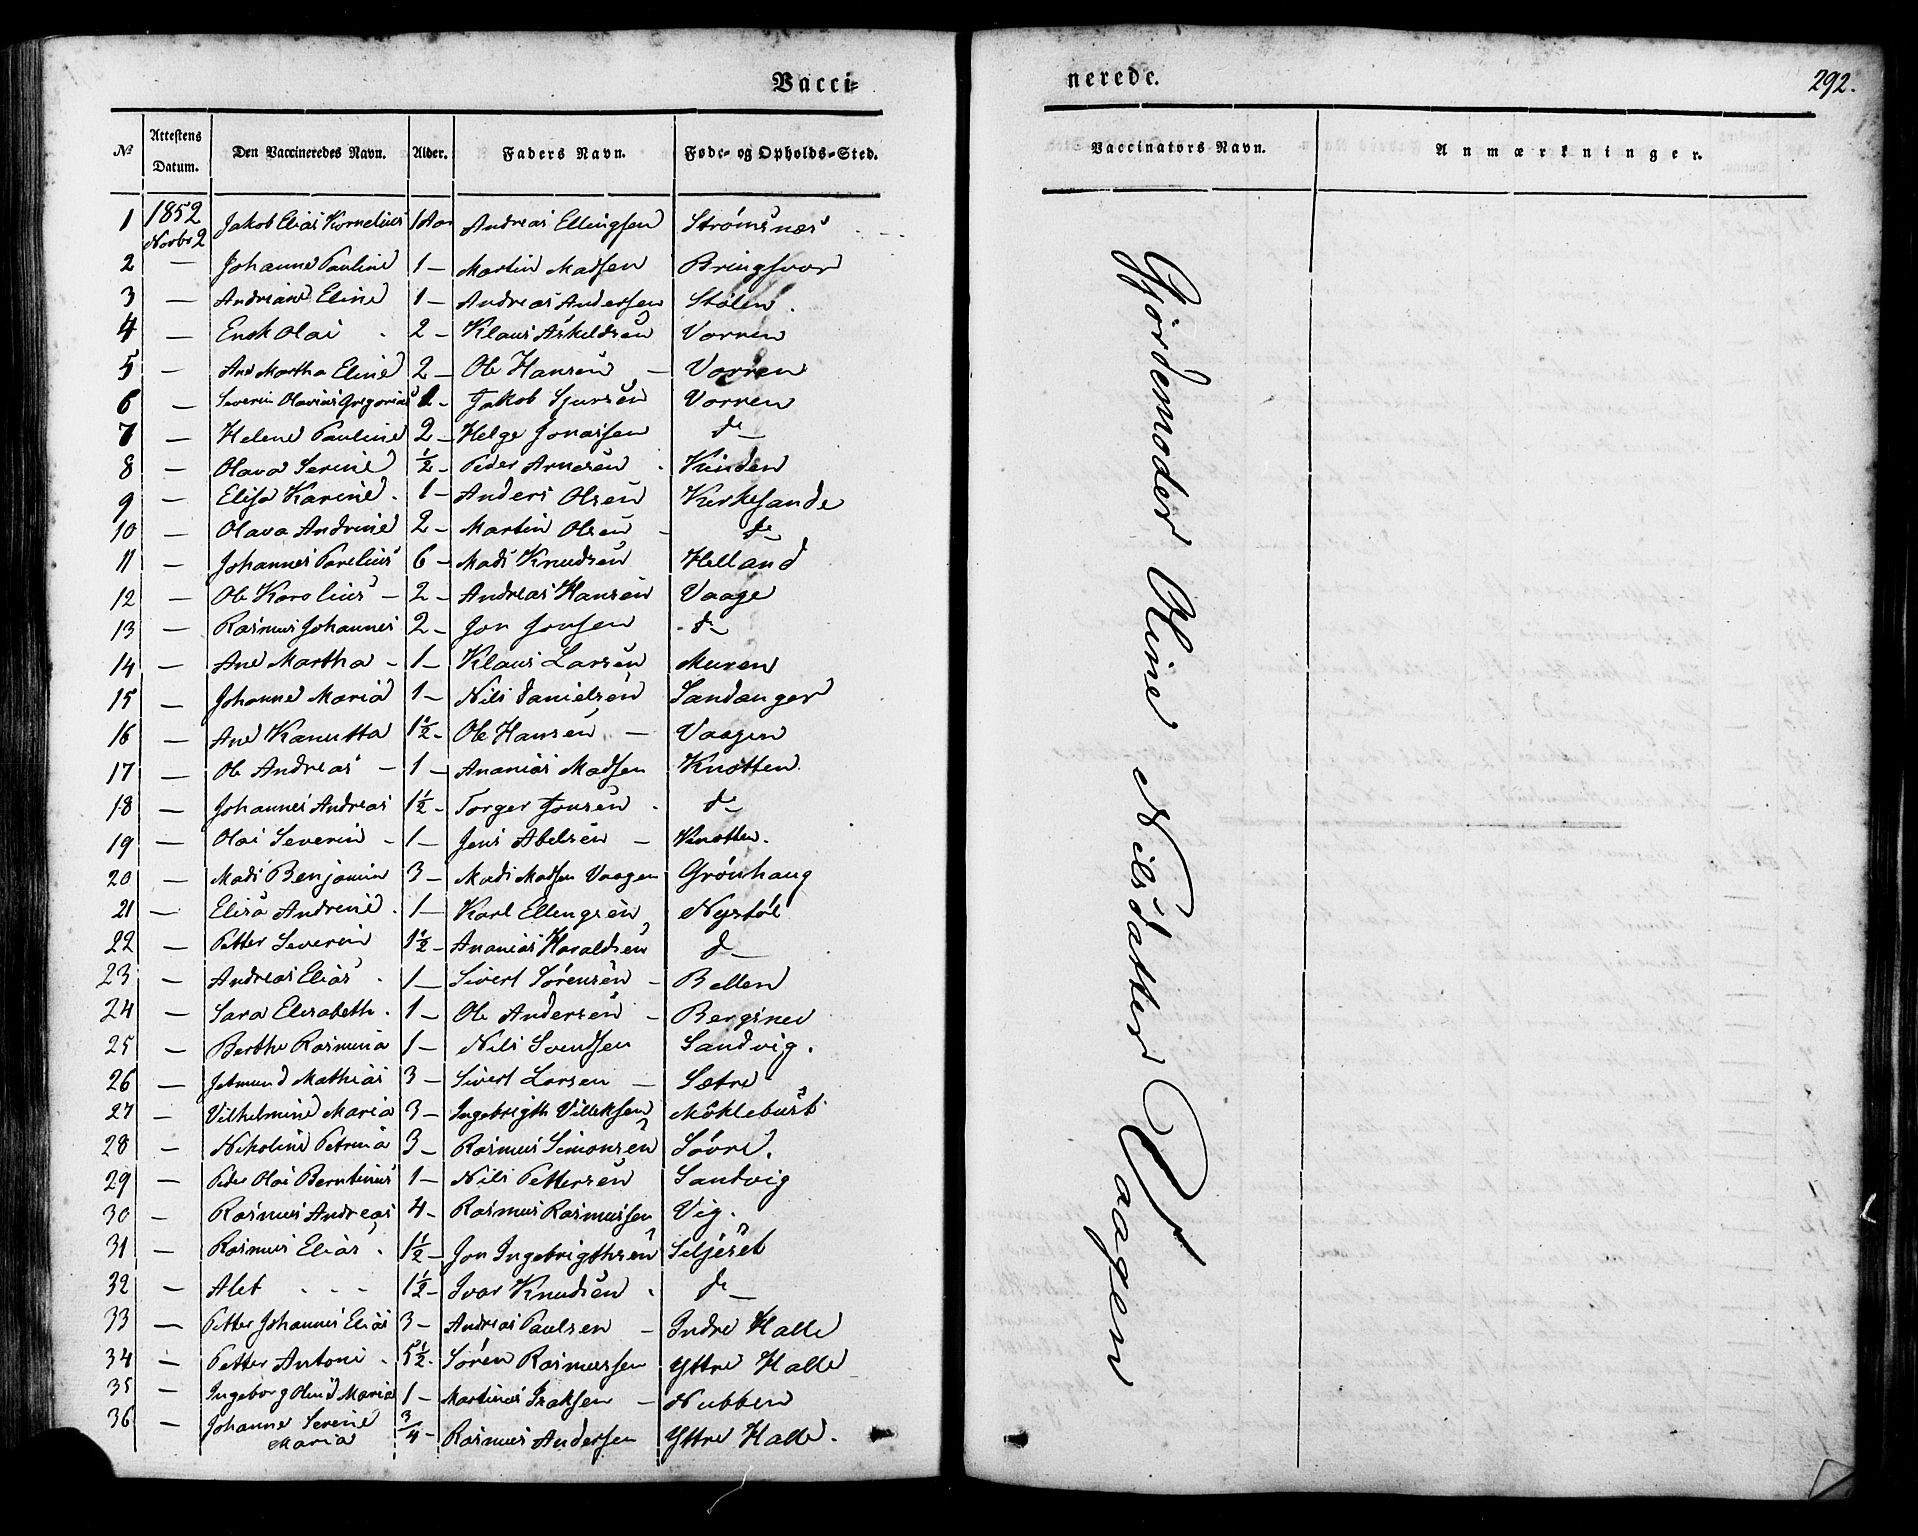 Vacci-
nerede.
292.
№ Attestens Datum. Den Vaccineredes Navn. Alder. Faders Navn. Føde- og Opholds-Sted.
Vaccinators Navn. Anmærkninger.
1 1852 Novbr 2 Jakob Elias Kornelius 1 Aar Andreas Ellingsen Strømsnæs
2 — Johanne Pauline 1 — Martin Madsen Bringsvor
3 — Andriane Eline 1 — Andreas Andersen Stölen.
4 — Enok Olai 2 — Klaus Askildsen Vorren
5 — Ane Martha Eline 2 — Ole Hansen — Vorren
6 — Severin Olavius Gregorius 1 — Jakob Sjursen Vorren
7 — Helene Pauline 2 — Helge Jonassen d—
8 — Olava Serine ½ — Peder Arnesen Kinden
9 — Elisa Karine 1 — Anders Olsen Kirkesande
10 — Olava Andrine 2 — Martin Olsen — d—
11 — Johannes Parelius 6 — Mads Knudsen Helland
12 — Ole Karolius — 2 — Andreas Hansen Vaage
13 — Rasmus Johannes 2 — Jon Jonsen d—
14 — Ane Martha — 1 — Klaus Larsen Muren
15 — Johanne Maria 1 — Nils Danielsen Sandanger
16 — Ane Kanutta 1½ — Ole Hansen — Vaagen
17 — Ole Andreas — 1 — Ananias Madsen Knotten
18 — Johannes Andreas 1½ — Torger Jonsen d—
19 — Olai Severin — 1 — Jens Abelsen — Knotten.
20 — Mads Benjamin 3 — Mads Madsen Vaagen Grönhaug
21 — Elisa Andrine 1 — Karl Ellingsen Nystöl
22 — Petter Severin 1½ — Ananias Haraldsen d—
23 — Andreas Elias 1 — Sivert Sørensen — Bellen
24 — Sara Elisabeth 1 — Ole Andersen — Bergsnev
25 — Berthe Rasmina 1 — Nils Svendsen Sandvig.
26 — Jetmund Mathias 3 — Sivert Larsen — Sætre
27 — Vilhelmine Maria 3 — Ingebrigth Villeksen Möklebust
28 — Nikoline Petrina 3 — Rasmus Simonsen Sövre.
29 — Peder Olai Berntinus 1 — Nils Pettersen Sandvig
30 — Rasmus Andreas 4 — Rasmus Rasmussen Vig.
31 — Rasmus Elias 1½ — Jon Ingebrigthsen Seljeset
32 — Alet - - - 1½ — Ivar Knudsen d—
33 — Petter Johannes Elias 3 — Andreas Paulsen — Indre Halle
34 — Petter Antoni 5½ — Sören Rasmussen Yttre Halle
35 — Ingeborg Oline Maria 1 — Martinus Isaksen — Nubben
36 — Johanne Serine Maria ¾ — Rasmus Andersen Yttre Halle.
Gjordemoder Oline Nilsdatter Vaagen